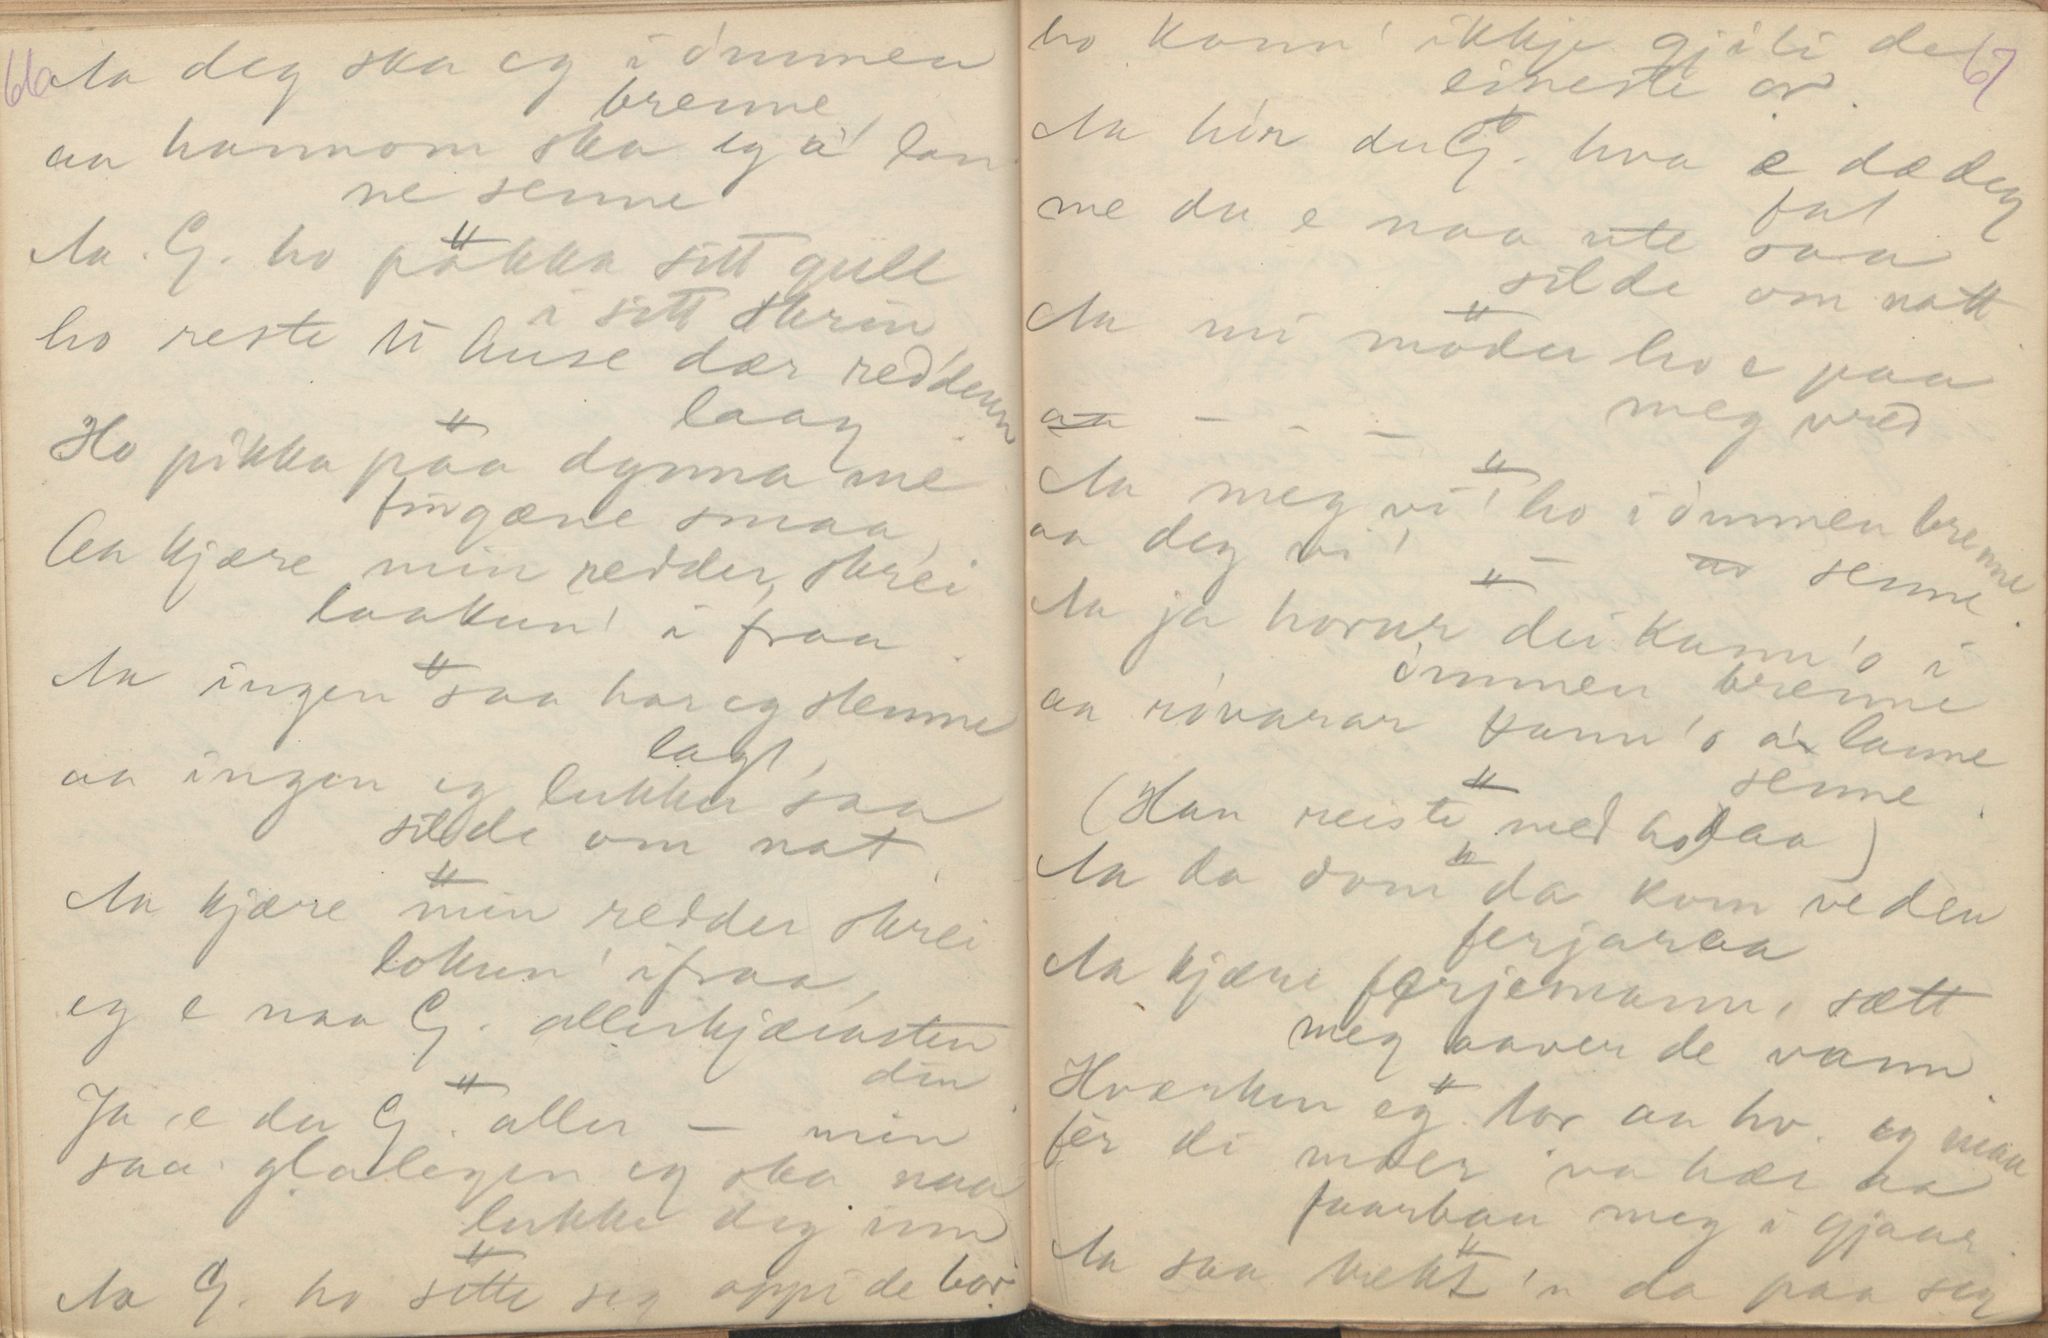 66
Aa deg ska eg i ommen
brenne,
aa hannom ska eg a' lan
ne senne
Aa. G. ho pakka sitt gull
i sitt skrin,
ho reste ti huse dær redderen
laag.
Ho pikka paa dynna me
fingæne smaa,
Aa kjære min redder, skrei
laakun' i fraa.
Aa ingen saa har eg stemne
lagt,
aa ingen eg lukker saa
silde om nat
Aa kjære min redder skrei
lokun' ifraa,
eg e naa G. allerkjærasten
din.
Ja, e du G. aller — min
saa glalegen eg ska naa
lukke deg inn
Aa G. ho sette seg oppi de bor
67
ho kann' ikkje gjiti de
eineste or.
Aa hør du G. hva e dæ deg
fat
me du e naa ute saa
silde om natt
Aa mi moder ho e paa
meg vred
aa — — —
Aa meg vi' ho i ommen brenne
aa deg vi' — senne.
Aa ja horur dei kann'o i
ommen brenne
aa røvarar kann'o a' lanne
senne.
(Han reiste med ho daa)
Aa da dom da kom ve den
ferjaraa
Aa kjære ferjemann, sætt
meg aaver de vann
Hværken eg tor aa ho. eg maa
fer di moer va hær aa
faarbau meg i gjaar.
Aa saa trekt 'n da paa seg